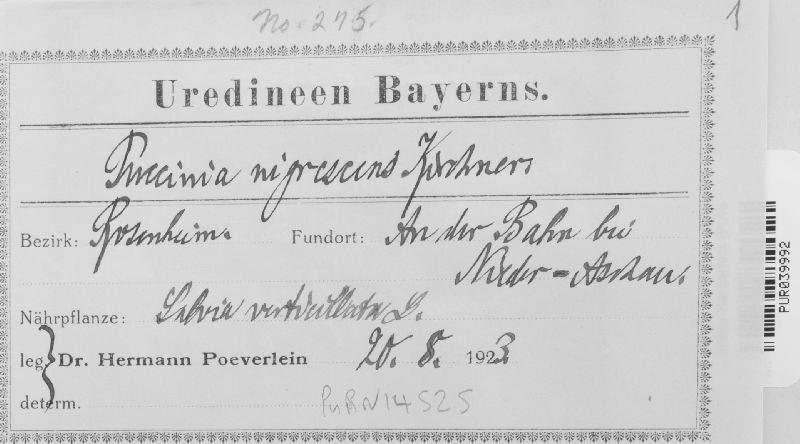 No. 275.
1
Uredineen Bayerns.
Puccinia nigrescens Kirchner.
Bezirk: Rosenheim. Fundort: An der Bahn bei
Nieder-Aschau.
Nährpflanze: Salvia verticillata L.
leg. Dr. Hermann Poeverlein 20. 8. 1923
determ.
PURN14525
PUR039992